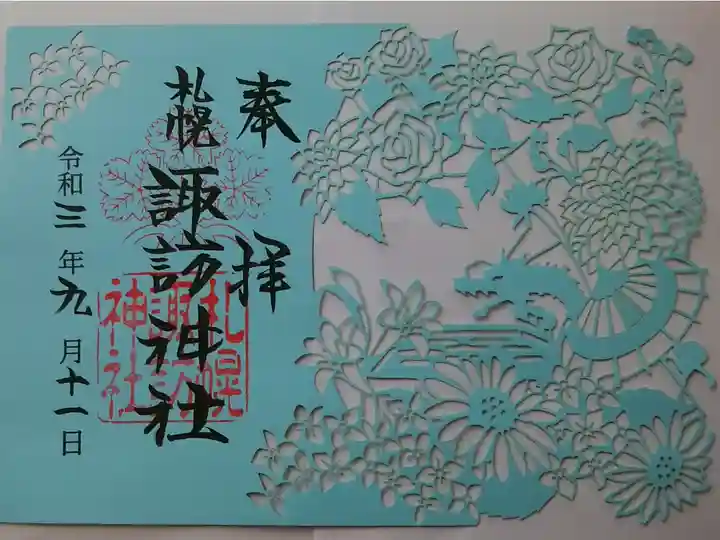 奉拝
札幌
諏訪神社
令和三年九月十一日
札幌
諏訪
神社